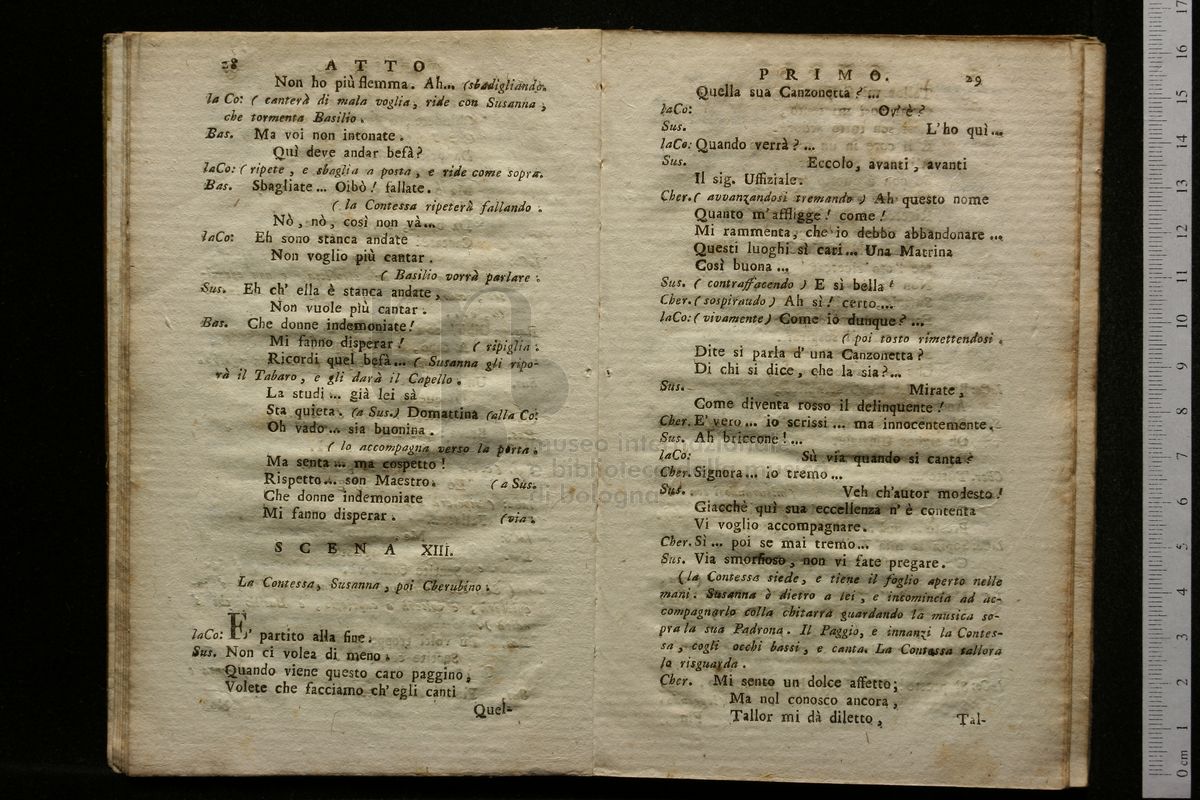 28 ATTO
Non ho più flemma. Ah... (sbadigliando.
la Co: ( canterà di mala voglia, ride con Susanna,
che tormenta Basilio.
Bas. Ma voi non intonate.
Quì deve andar befà?
laCo: ( ripete, e sbaglia a posta, e ride come sopra.
Bas. Sbagliate... Oibò! fallate.
( la Contessa ripeterà fallando.
Nò, nò, così non và...
laCo: Eh sono stanca andate
Non voglio più cantar.
( Basilio vorrà parlare.
Sus. Eh ch' ella è stanca andate,
Non vuole più cantar.
Bas. Che donne indemoniate!
Mi fanno disperar! ( ripiglia.
Ricordi quel befà... ( Susanna gli ripo-
rà il Tabaro, e gli darà il Capello.
La studi... già lei sà
Sta quieta. (a Sus.) Domattina (alla Co:
Oh vado... sia buonina.
( lo accompagna verso la porta.
Ma senta... ma cospetto!
Rispetto... son Maestro. (a Sus.
Che donne indemoniate
Mi fanno disperar. (via.
SCENA XIII.
La Contessa, Susanna, poi Cherubino.
laCo: E' partito alla fine.
Sus. Non ci volea di meno.
Quando viene questo caro paggino,
Volete che facciamo ch' egli canti
Quel-
PRIMO. 29
Quella sua Canzonetta?...
laCo: Ov' è?
Sus. L' ho quì...
laCo: Quando verrà?...
Sus. Eccolo, avanti, avanti
Il sig. Uffiziale.
Cher. ( avvanzandosi tremando ) Ah questo nome
Quanto m' affligge! come!
Mi rammenta, che io debbo abbandonare...
Questi luoghi sì cari... Una Matrina
Così buona...
Sus. ( contraffacendo ) E sì bella!
Cher. ( sospiraudo ) Ah sì! certo...
laCo: ( vivamente ) Come iò dunque?...
( poi tosto rimettendosi.
Dite si parla d' una Canzonetta?
Di chi si dice, che la sia?...
Sus. Mirate,
Come diventa rosso il delinquente!
Cher. E' vero... io scrissi... ma innocentemente.
Sus. Ah briccone!...
laCo: Sù via quando si canta?
Cher. Signora... io tremo...
Sus. Veh ch'autor modesto!
Giacchè quì sua eccellenza n' è contenta
Vi voglio accompagnare.
Cher. Sì... poi se mai tremo...
Sus. Via smorfioso, non vi fate pregare.
(la Contessa siede, e tiene il foglio aperto nelle
mani. Susanna è dietro a lei, e incomincia ad ac-
compagnarlo colla chitarra guardando la musica so-
pra la sua Padrona. Il Paggio, e innanzi la Contes-
sa, cogli occhi bassi, e canta. La Contessa tallora
lo risguarda.
Cher. Mi sento un dolce affetto;
Ma nol conosco ancora,
Tallor mi dà diletto,
Tal-
museo internazionale
e biblioteca
di bologna
0 cm 1 2 3 4 5 6 7 8 9 10 11 12 13 14 15 16 17